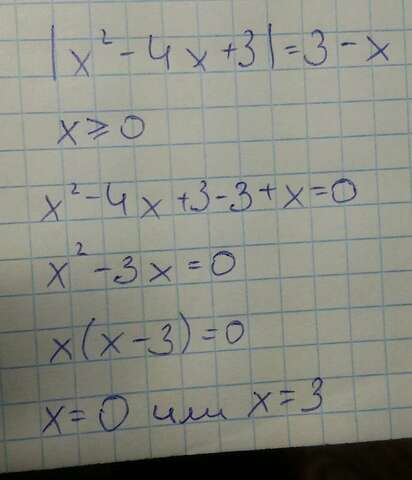 |x² - 4x + 3| = 3 - x
x ⩾ 0
x² - 4x + 3 - 3 + x = 0
x² - 3x = 0
x(x - 3) = 0
x = 0 или x = 3